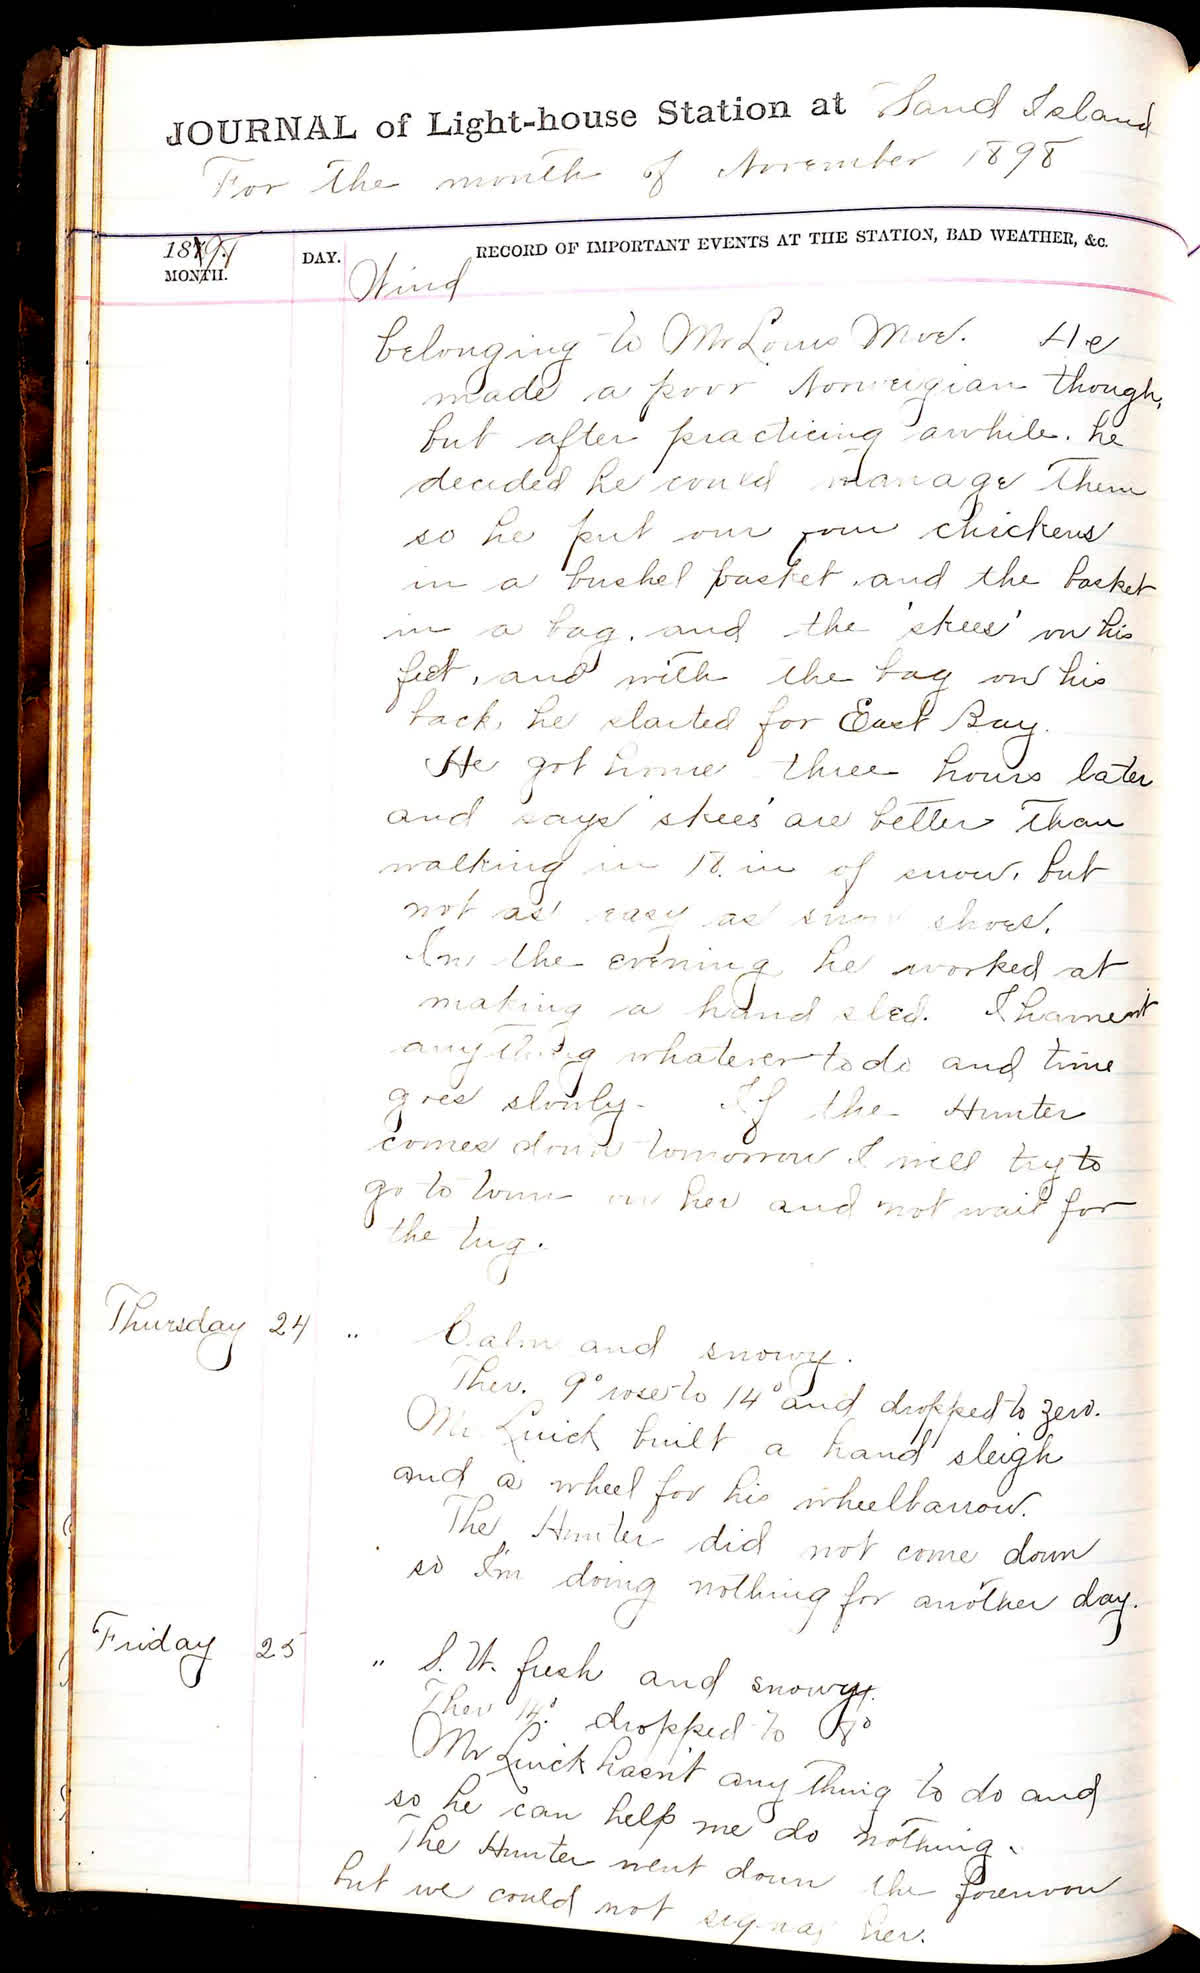 JOURNAL of Light-house Station at Sand Island
For the month of November 1898
1898
MONTH.
DAY.
RECORD OF IMPORTANT EVENTS AT THE STATION, BAD WEATHER, &c.
Wind
belonging to Mr Louis Moe. He
made a poor Norweigian though,
but after practicing awhile. he
decided he could manage them
so he put our four chickens
in a bushel basket, and the basket
in a bag, and the 'skees' on his
feet, and with the bag on his
back, he started for East Bay.
He got home three hours later
and says 'skees' are better than
walking in 18 in of snow, but
not as easy as snow shoes.
In the evening he worked at
making a hand sled. I havent
anything whatever to do and time
goes slowly. If the Hunter
comes down tomorrow I will try to
go to town on her and not wait for
the tug.
Thursday 24 " Calm and snowy.
Ther. 9° rose to 14° and dropped to zero.
Mr Luick built a hand sleigh
and a wheel for his wheelbarrow.
The Hunter did not come down
so I'm doing nothing for another day.
Friday 25 " S. W. fresh and snowy.
Ther 14° dropped to 8°
Mr Luick hasn't any thing to do and
so he can help me do nothing.
The Hunter went down the forenoon
but we could not signal her.